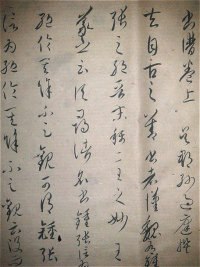 書譜卷上 吳郡孫過庭撰
夫自古之善書者漢魏有鍾
張之絕晉末稱二王之妙王
羲之云頃尋諸名書鍾張信為
絕倫其餘不足觀可謂鍾張
信為絕倫其餘不足觀